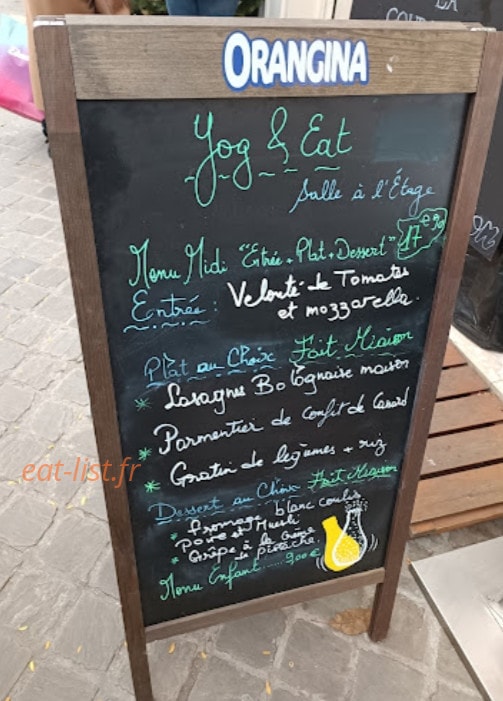 LA
ORANGINA
Yog & Eat
Salle à l'Étage
Menu Midi "Entrée + Plat + Dessert" 17
Entrée : Velouté de Tomates
et mozzarella.
Plat au Choix Fait Maison
* Lasagnes Bolognaise maison
* Parmentier de confit de Canard
* Gratin de légumes + riz
Dessert au Choix Fait Maison
* Fromage blanc coulis
poire et Muesli
* Crêpe à la Crème
de Pistache.
Menu Enfant ...... 9,00 €
eat-list.fr